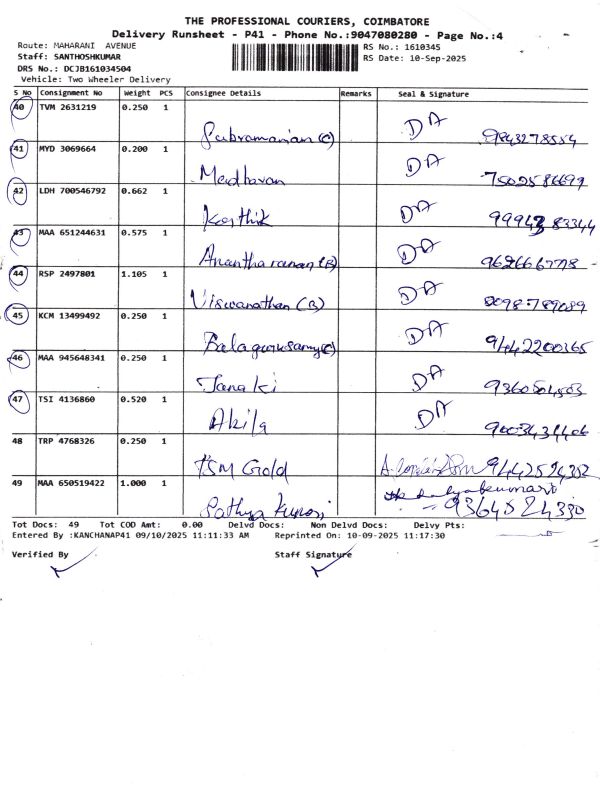 THE PROFESSIONAL COURIERS, COIMBATORE
Delivery Runsheet - P41 - Phone No.:9047080280 - Page No.:4
Route: MAHARANI AVENUE RS No.: 1610345
Staff: SANTHOSHKUMAR RS Date: 10-Sep-2025
DRS No.: DCJB161034504
Vehicle: Two Wheeler Delivery
S No Consignment No Weight PCS Consignee Details Remarks Seal & Signature
40 TVM 2631219 0.250 1 Subramanian (C) DA 9843278554
41 MYD 3069664 0.200 1 Madhavan DA 7502586699
42 LDH 700546792 0.662 1 Karthik DA 9994383344
43 MAA 651244631 0.575 1 Anantharaman (B) DA
44 RSP 2497801 1.105 1 Viswanathan (B) DA
45 KCM 13499492 0.250 1 Balagurusamy (C) DA 9442200365
46 MAA 945648341 0.250 1 Janaki DA 9360504503
47 TSI 4136860 0.520 1 Akila DA
48 TRP 4768326 0.250 1 TSM Gold 9442524352
49 MAA 650519422 1.000 1 Sathya 9364524330
Tot Docs: 49 Tot COD Amt: 0.00 Delvd Docs: Non Delvd Docs: Delvy Pts:
Entered By :KANCHANAP41 09/10/2025 11:11:33 AM Reprinted On: 10-09-2025 11:17:30
Verified By Staff Signature